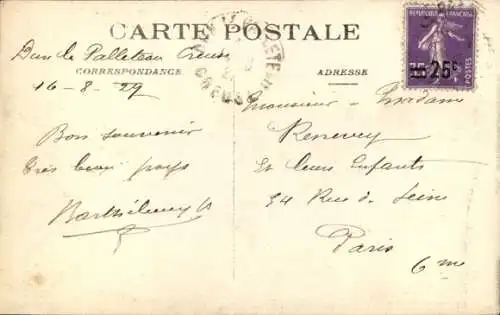 CARTE POSTALE
Dun le Palleteau Creuse
CORRESPONDANCE
ADRESSE
16-8-29
Bon souvenir
Très beau pays
Barthélemy
Monsieur - Madame
Renevey
et leurs Enfants
34 Rue de Seine
Paris
6me
REPUBLIQUE FRANCAISE
25c
POSTES
CREUSE